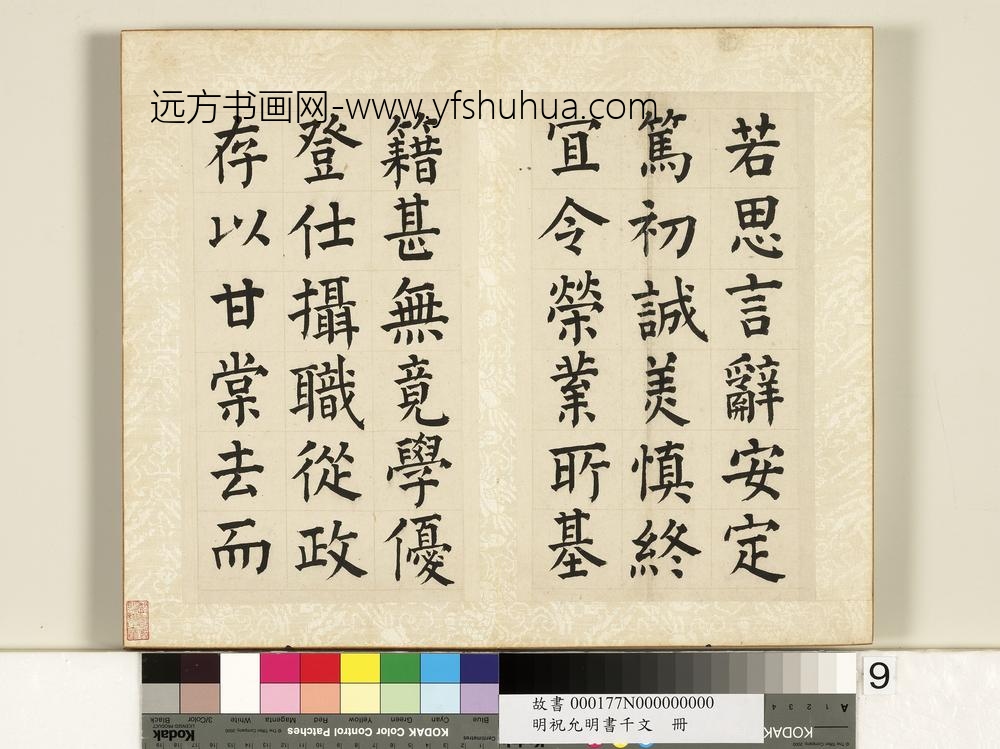 远方书画网-www.yfshuhua.com
若思言辭安定
篤初誠美慎終
宜令榮業所基
籍甚無竟學優
登仕攝職從政
存以甘棠去而
9
故書 000177N000000000
明祝允明書千文 冊
Blue Cyan Green Yellow Red Magenta White 3/Color Black
KODAK Color Control Patches
Kodak
LICENSED PRODUCT
KODAK
A 1 2 3 4